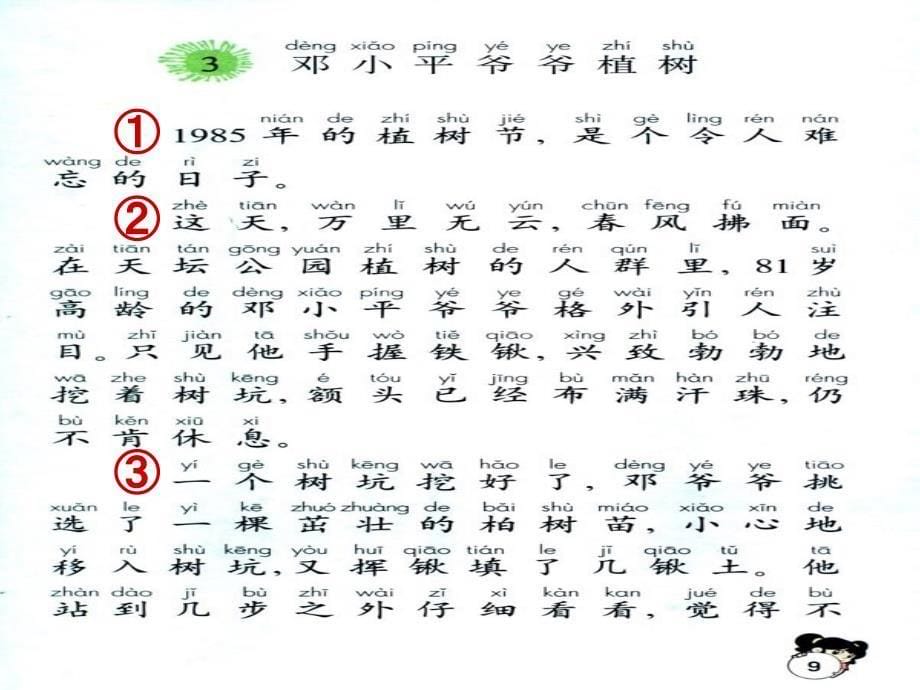 dèng xiǎo píng yé ye zhí shù
3 邓小平爷爷植树
nián de zhí shù jié shì gè lìng rén nán
① 1985年的植树节，是个令人难
wàng de rì zi
忘的日子。
zhè tiān wàn lǐ wú yún chūn fēng fú miàn
② 这天，万里无云，春风拂面。
zài tiān tán gōng yuán zhí shù de rén qún lǐ suì
在天坛公园植树的人群里，81岁
gāo líng de dèng xiǎo píng yé ye gé wài yǐn rén zhù
高龄的邓小平爷爷格外引人注
mù zhǐ jiàn tā shǒu wò tiě qiāo xìng zhì bó bó de
目。只见他手握铁锹，兴致勃勃地
wā zhe shù kēng é tóu yǐ jīng bù mǎn hàn zhū réng
挖着树坑，额头已经布满汗珠，仍
bù kěn xiū xi
不肯休息。
yí gè shù kēng wā hǎo le dèng yé ye tiāo
③ 一个树坑挖好了，邓爷爷挑
xuǎn le yì kē zhuó zhuàng de bǎi shù miáo xiǎo xīn de
选了一棵茁壮的柏树苗，小心地
yí rù shù kēng yòu huī qiāo tián le jǐ qiāo tǔ tā
移入树坑，又挥锹填了几锹土。他
zhàn dào jǐ bù zhī wài zǐ xì kàn kan jué de bù
站到几步之外仔细看看，觉得不
9